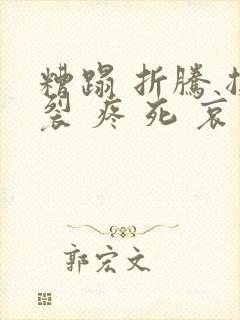 糟蹋 折騰
裂 疼 死 哀
郭宏文